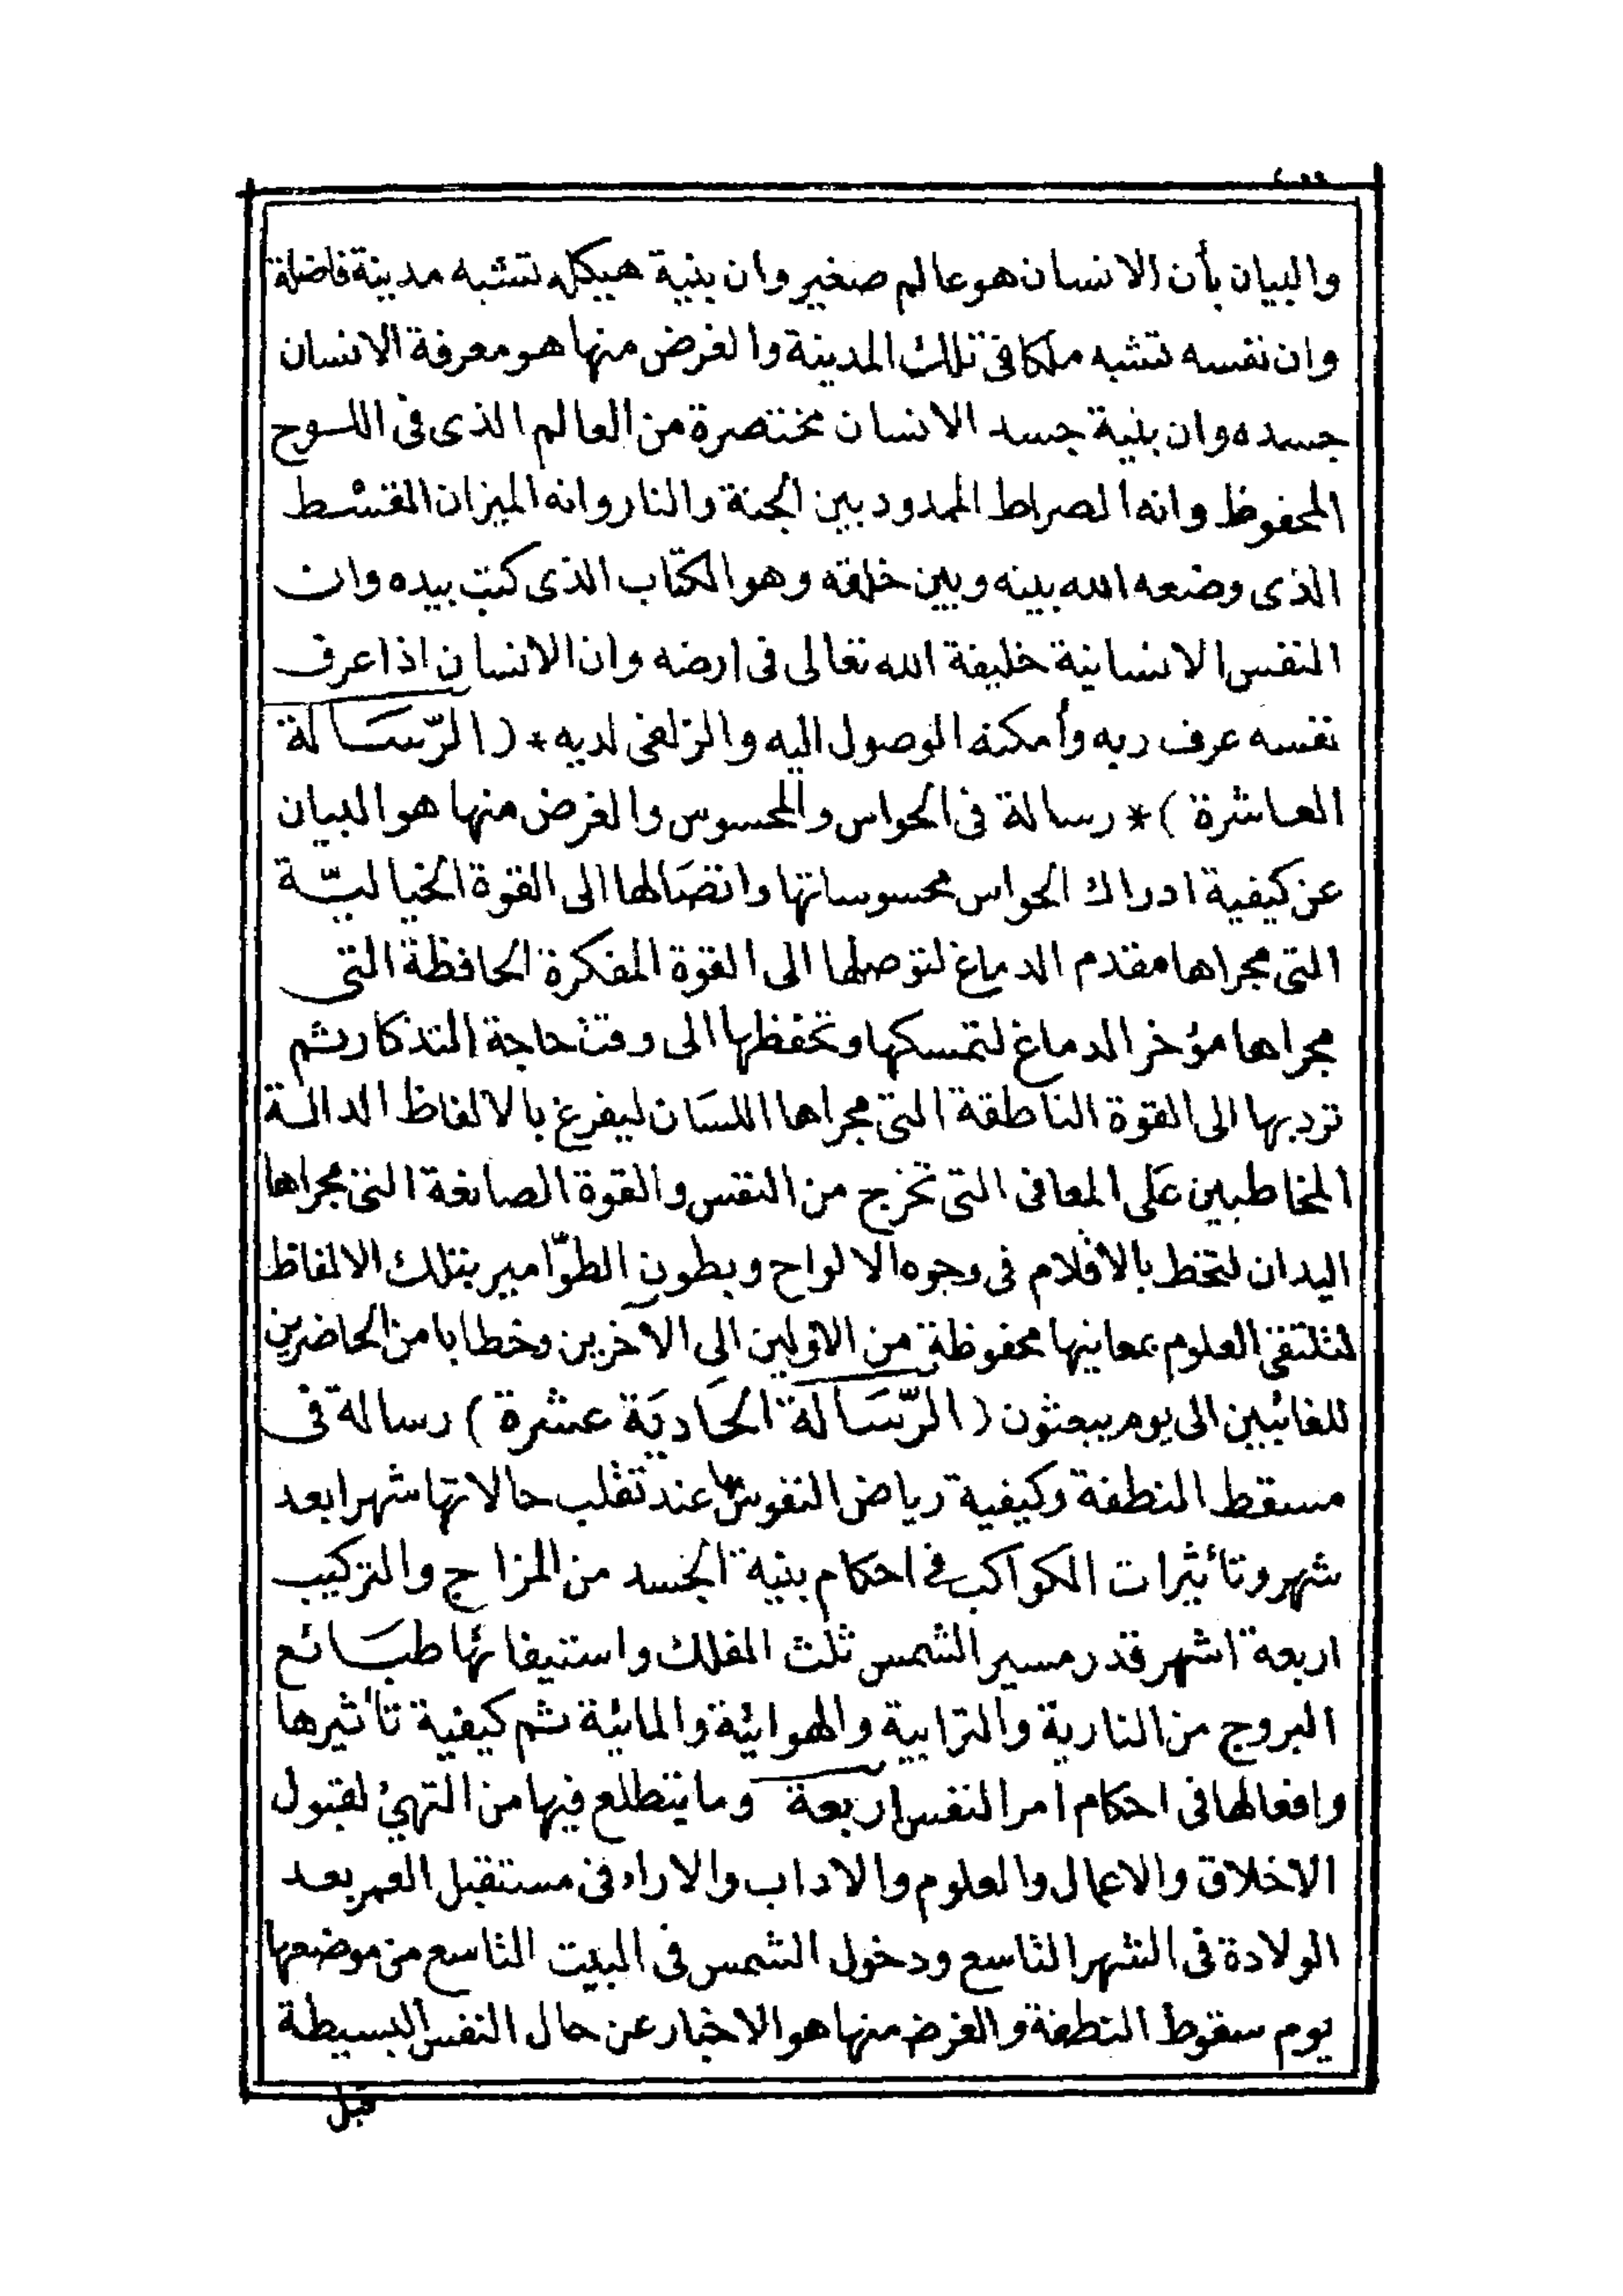 والبيان بأن الانسان هو عالم صغير وان بنية هيكله تشبه مدينة فاضلة
وان نفسه تشبه ملكا فى تلك المدينة والغرض منها هو معرفة الانسان
جسده وان بنية جسد الانسان مختصرة من العالم الذى فى اللوح
المحفوظ وانه الصراط الممدود بين الجنة والنار وانه الميزان القسط
الذى وضعه الله بينه وبين خلقه وهو الكتاب الذى كتب بيده وان
النفس الانسانية خليفة الله تعالى فى ارضه وان الانسان اذا عرف
نفسه عرف ربه وأمكنه الوصول اليه والزلفى لديه * ( الرّسَالة
العاشرة ) * رسالة فى الحواس والمحسوس والغرض منها هو البيان
عن كيفية ادراك الحواس محسوساتها واتصَالها الى القوة الخياليّة
التى مجراها مقدم الدماغ لتوصلها الى القوة المفكرة الحافظة التى
مجراها مؤخر الدماغ لتمسكها وتحفظها الى وقت حاجة التذكار ثم
تردبها الى القوة الناطقة التى مجراها اللسَان ليفرغ بالالفاظ الدالة
المخاطبين عَلى المعانى التى تخرج من النفس والقوة الصانعة التى مجراها
اليدان لتخط بالاقلام فى وجوه الالواح وبطون الطوّامير بتلك الالفاظ
لتلتقى العلوم بمعانيها محفوظة من الاولين الى الآخرين وخطابا من الحاضرين
للغائبين الى يوم يبعثون ( الرّسَالة الحَاديَة عشرة ) رسالة فى
مسقط النطفة وكيفية رياض النفوس عند تقلب حالاتها شهرا بعد
شهر وتأثيرات الكواكب فى احكام بنية الجسد من المزاج والتركيب
اربعة اشهر قدر مسير الشمس ثلث الفلك واستيفائها طبَائع
البروج من النارية والترابية والهوائية والمائية ثم كيفية تأثيرها
وافعالها فى احكام امر النفس اربعة وما يتطلع فيها من التهئ لقبول
الاخلاق والاعمال والعلوم والاداب والاراء فى مستقبل العمر بعد
الولادة فى الشهر التاسع ودخول الشمس فى البيت التاسع من موضعها
يوم سقوط النطفة والغرض منها هو الاخبار عن حال النفس البسيطة
قبل